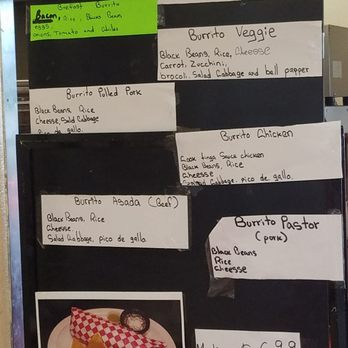 Breakfast Burrito
Bacon, Rice, Beans
eggs,
onions, Tomato and Chiles
Burrito Veggie
Black Beans, Rice, Cheesse
Carrot, Zucchini,
brocoli, Salad Cabbage and bell papper
Burrito Pulled Pork
Black Beans, Rice
Cheesse, Salad Cabbage
Pico de gallo.
Burrito Chicken
Cook tinga Sauce chicken
Black Beans, Rice
Cabbage, pico de gallo.
Burrito Asada (Beef)
Black Beans, Rice
Cheesse,
Salad Cabbage, pico de gallo.
Burrito Pastor
(pork)
Black Beans
Rice
Cheesse